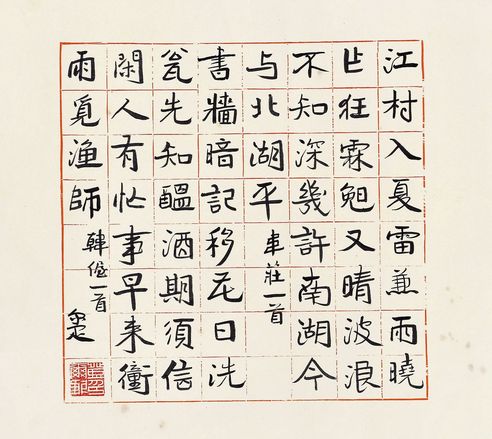 江村入夏雷兼雨曉
乍狂霖晚又晴波浪
不知深幾許南湖今
与北湖平
韋莊一首
書牆暗記移花日洗
瓮先知醞酒期須信
閑人有忙事早来衝
雨覓漁師
韓偓一首